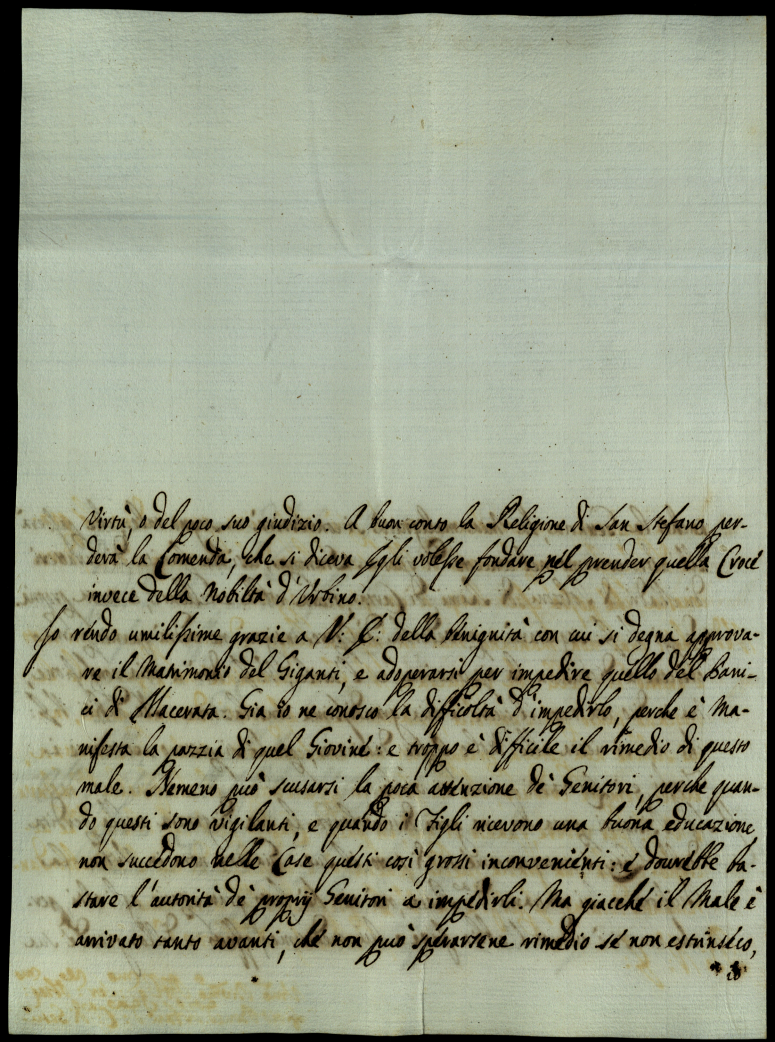 Virtù, o del poco suo giudizio. A buon conto la Religione di San Stefano per-
derà la Comenda, che si diceva Egli volesse fondare nel prender quella Croce
invece della Nobiltà d'Urbino.
Io rendo umilissime grazie a V: E: della benignità con cui si degna approva-
re il Matrimonio del Giganti, e adoperarsi per impedire quello del Pani-
ci di Macerata. Gia io ne conosco la difficoltà d'impedirlo, perche è ma-
nifesta la pazzia di quel Giovine: e troppo è difficile il rimedio di questo
male. Nemeno può scusarsi la poca attenzione de Genitori, perche quan-
do questi sono vigilanti, e quando i Figli ricevono una buona educazione
non succedono nelle Case questi così grossi inconvenienti: e dovrebbe ba-
stare l'autorità de proprij Genitori a impedirli. Ma giacché il Male è
arrivato tanto avanti, che non può sperarsene rimedio se non estrinseco,
io